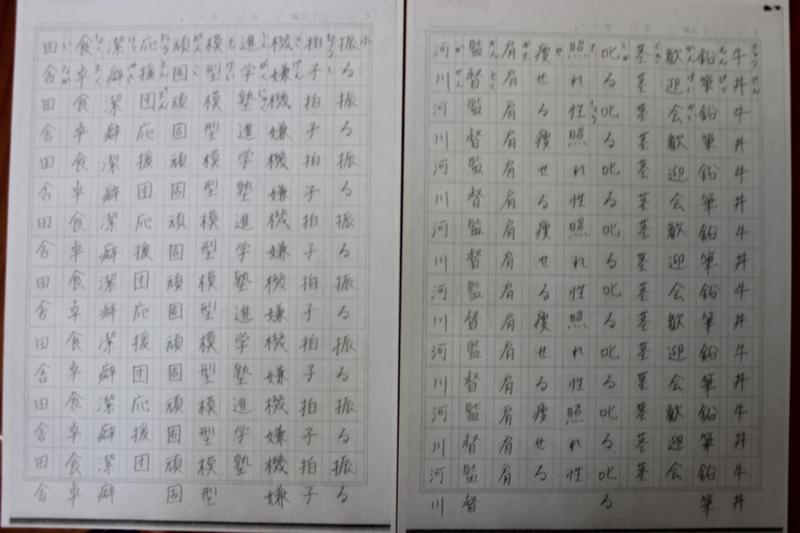 牛丼牛丼牛丼牛丼牛丼牛丼牛丼牛丼
鉛筆鉛筆鉛筆鉛筆鉛筆鉛筆鉛筆鉛筆
歓迎会歓迎会歓迎会歓迎会歓迎会
茎茎茎茎茎茎茎茎茎茎茎茎茎茎茎
叱る叱る叱る叱る叱る叱る叱る叱る
照れ性照れ性照れ性照れ性照れ性
痩せる痩せる痩せる痩せる痩せる
肩肩肩肩肩肩肩肩肩肩肩肩肩肩肩
監督監督監督監督監督監督監督監督
河川河川河川河川河川河川河川河川
振る振る振る振る振る振る振る振る
拍子拍子拍子拍子拍子拍子拍子拍子
機嫌機嫌機嫌機嫌機嫌機嫌機嫌機嫌
進学塾進学塾進学塾進学塾進学塾
模型模型模型模型模型模型模型模型
頑固頑固頑固頑固頑固頑固頑固頑固
応援団応援団応援団応援団応援団
潔癖潔癖潔癖潔癖潔癖潔癖潔癖潔癖
食卓食卓食卓食卓食卓食卓食卓食卓
田舎田舎田舎田舎田舎田舎田舎田舎